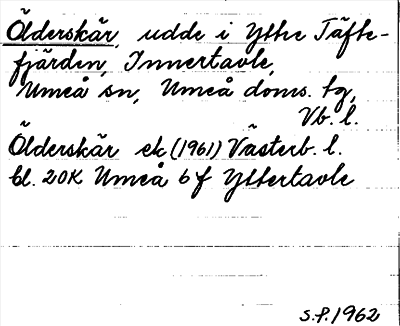 Ölderskär, udde i Yttre Täfte-
fjärden, Innertavle,
Umeå sn, Umeå doms. tg,
Vb. l.
Ölderskär ek (1961) Västerb. l.
bl. 20K Umeå 6f Yttertavle
S.P. 1962